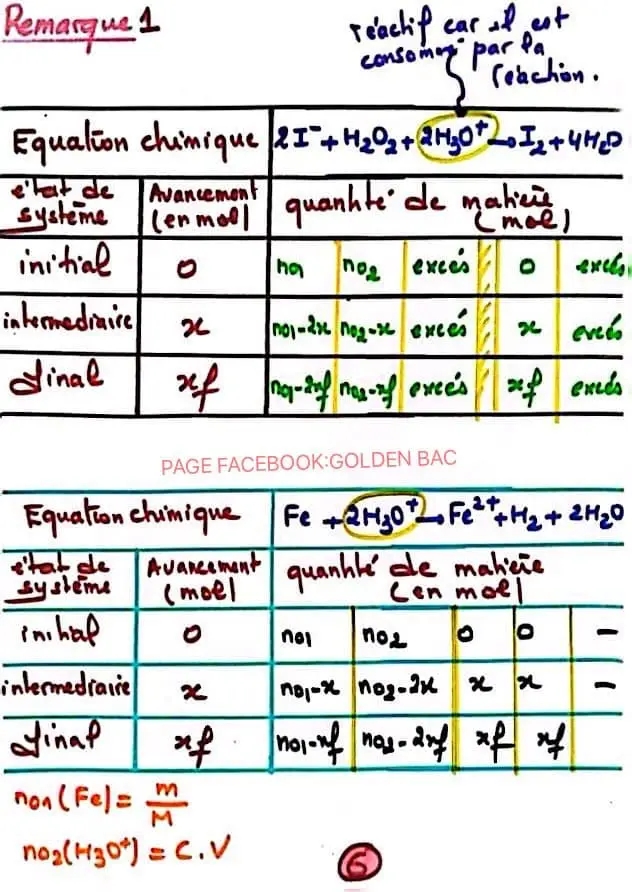 Remarque 1
réactif car il est
consomé par la
réaction.
Equation chimique 2I⁻ + H₂O₂ + 2H₃O⁺ → I₂ + 4H₂O
état de système Avancement (en mol) quantité de matière (mol)
initial 0 n01 n02 excés 0 excés
intermediaire x n01-2x n02-x excés x excés
final xf n01-2xf n02-xf excés xf excés
PAGE FACEBOOK:GOLDEN BAC
Equation chimique Fe + 2H₃O⁺ → Fe²⁺ + H₂ + 2H₂O
état de système Avancement (mol) quantité de matière (en mol)
initial 0 n01 n02 0 0 –
intermediaire x n01-x n02-2x x x –
final xf n01-xf n02-2xf xf xf
n01(Fe) = m/M
n02(H₃O⁺) = C.V
6